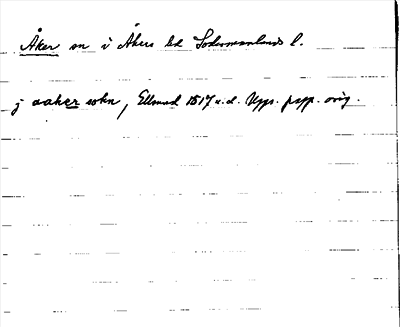 Åker sn i Åkers hd Södermanlands l.
j aaker sokn, Ellmad 1517 u.d. Upps. papp. orig.